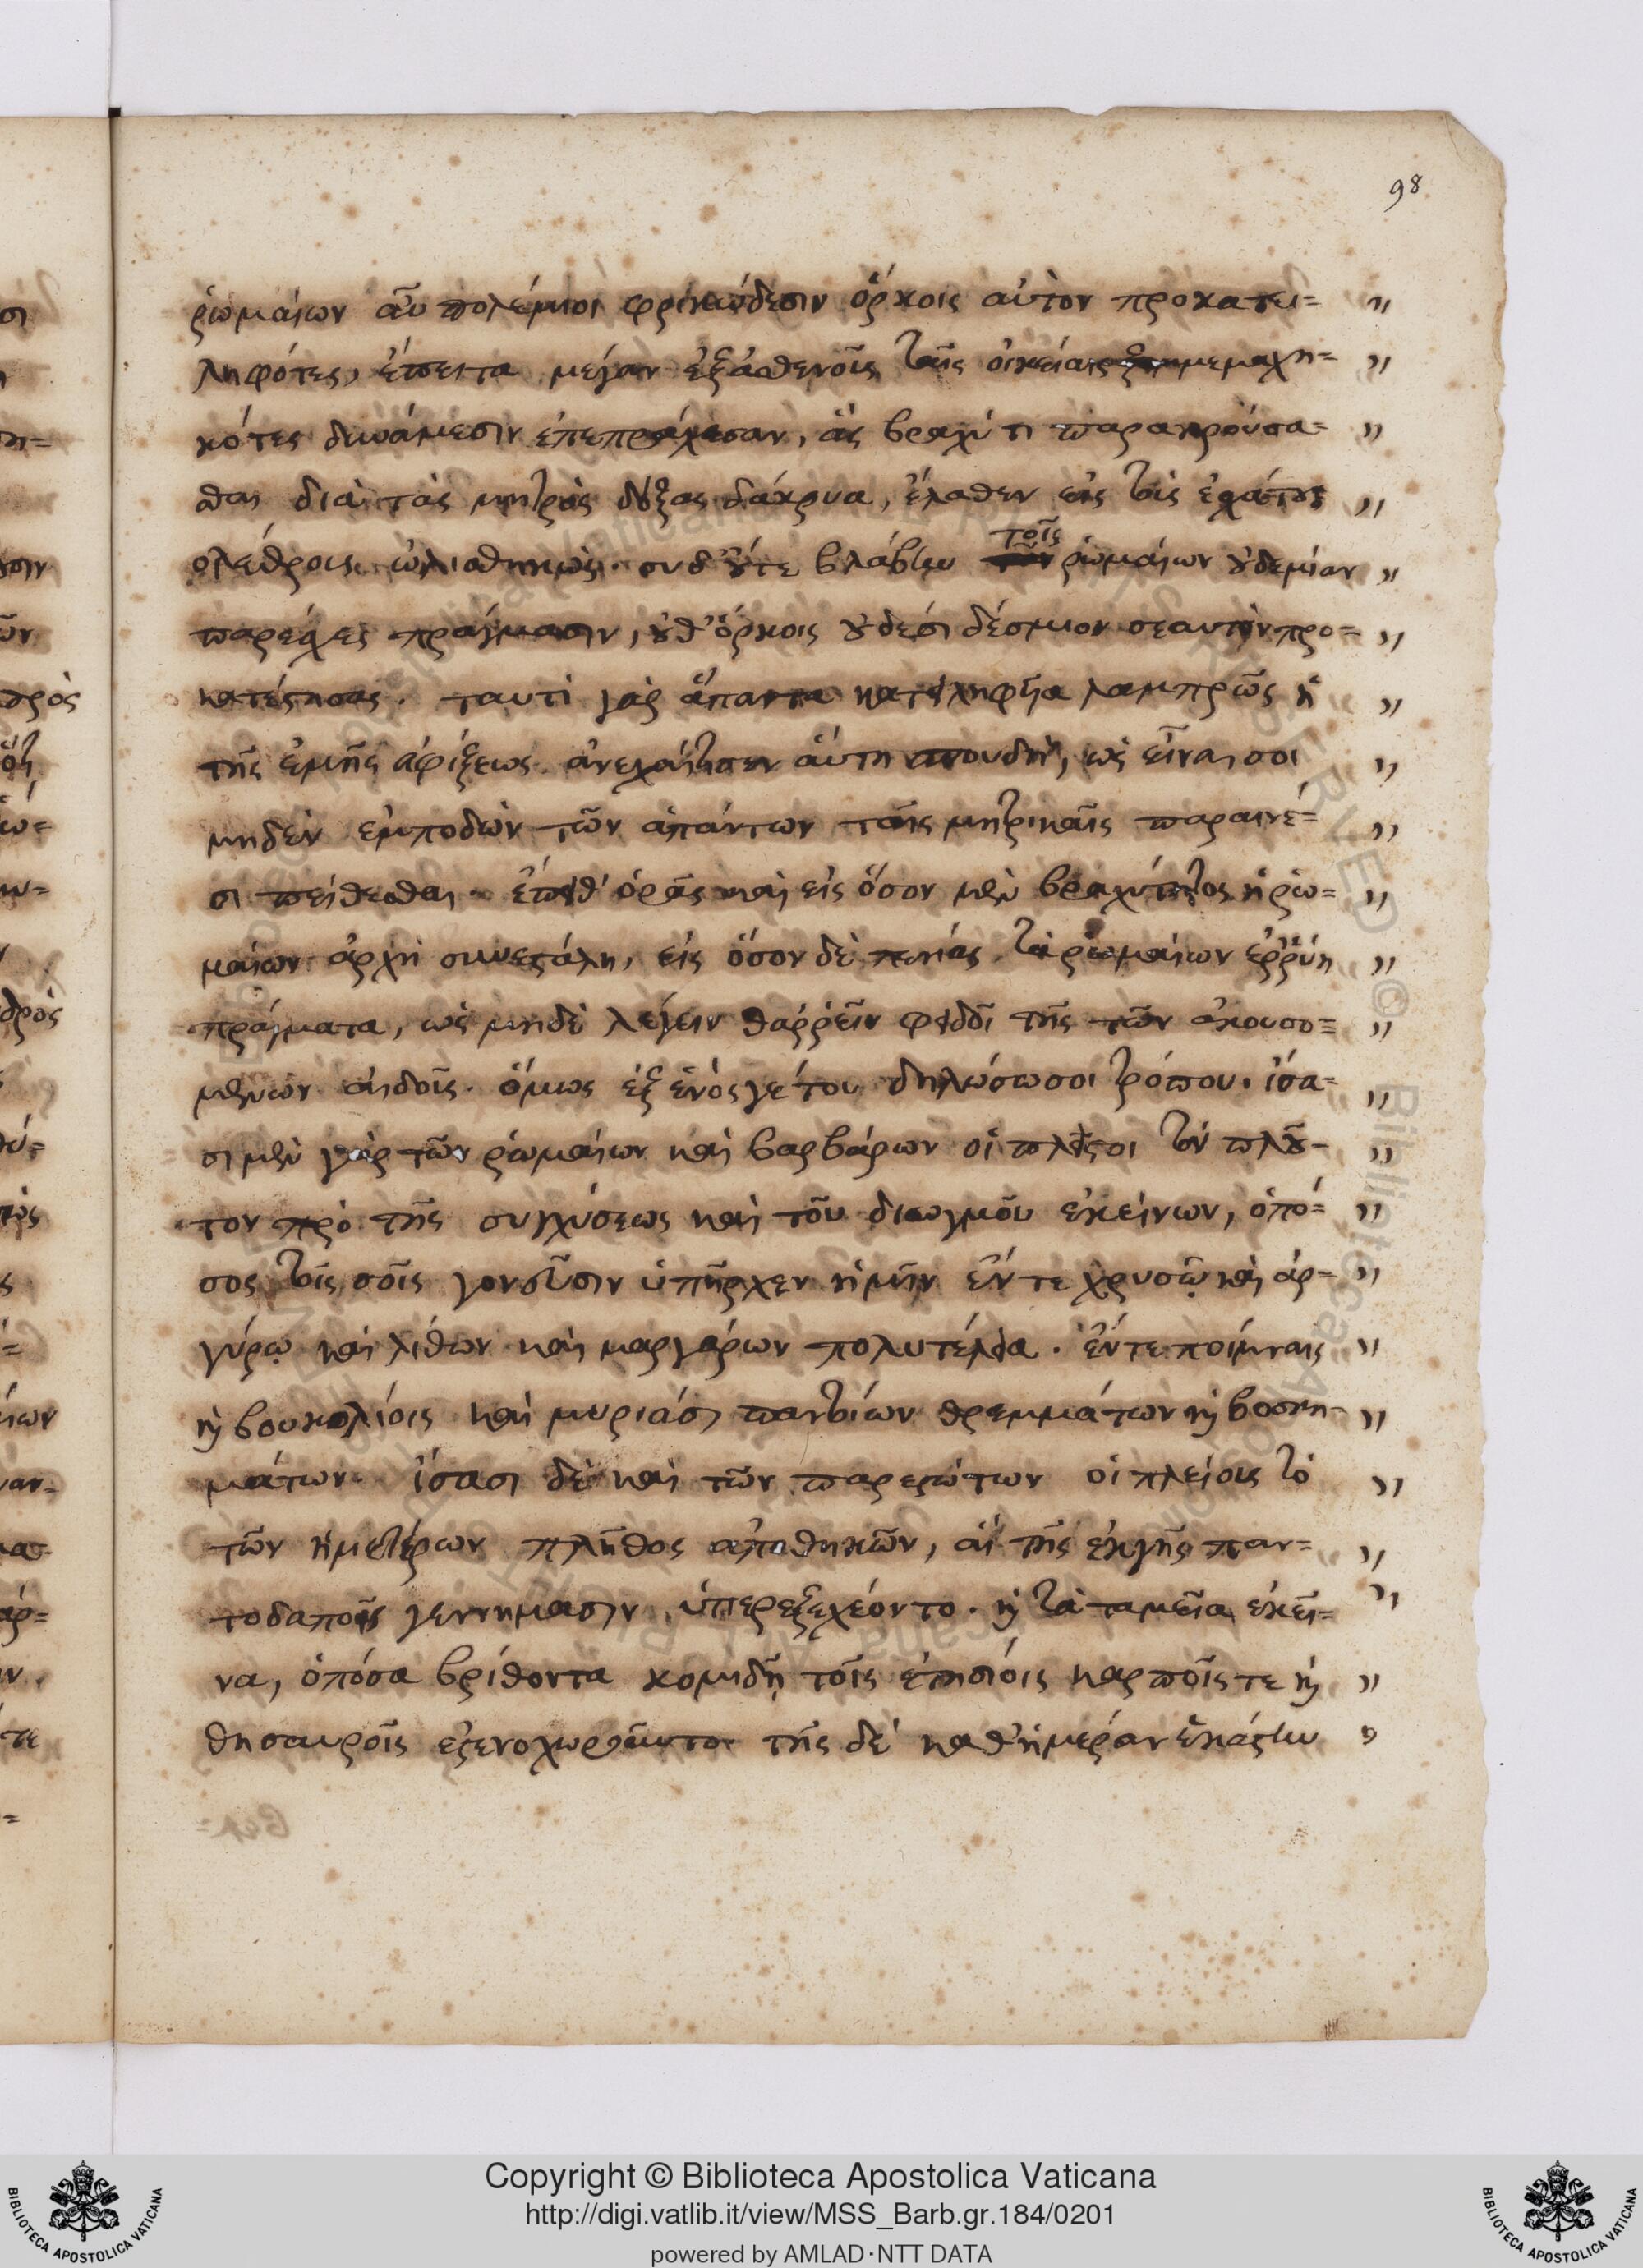 98
ῥωμαίων αὖ πολέμιοι φρικώδεσιν ὅρκοις αὐτὸν προκατει=
ληφότες, ἔπειτα μέγαν ἐξασθενοῖς ταῖς οἰκείαις μεμαχη=
κότες δυνάμεσιν ἐπεπράχεσαν, ἃς βραχύ τι παρακρούσα=
σθαι διὰ τὰς μητρὸς δόξας δάκρυα, ἔλαθεν εἰς τοὺς ἐσχάτους
ολέθρους ὠλισθηκώς. σὺ δ' οὔτε βλάβην τοῖς ῥωμαίων οὐδεμίαν
παρέσχες πράγμασιν, οὔθ' ὅρκοις οὐδέσι δέσμιον σεαυτὸν προ=
κατέστησας. ταυτὶ γὰρ ἅπαντα κατειληφυῖα λαμπρῶς ἡ
τῆς ἐμῆς ἀφίξεως ἀνεχαίτισεν αὕτη σπουδή, ὡς εἶναι σοι
μηδὲν ἐμποδὼν τῶν ἁπάντων ταῖς μητρικαῖς παραινέ=
σι πείθεσθαι. ἔπειθ' ὁρᾷς καὶ εἰς ὅσον μὲν βραχύτητος ἡ ῥω=
μαίων ἀρχὴ συνεστάλη, εἰς ὅσον δὲ πενίας τὰ ῥωμαίων ἐρρύη
πράγματα, ὡς μηδὲ λέγειν θαρρεῖν φειδοῖ τῆς τῶν ἀκουσο=
μένων αἰδοῖς. ὅμως ἐξ ἑνός γέ του δηλώσω σοι τρόπου. ἴσα=
σι μὲν γὰρ τῶν ῥωμαίων καὶ βαρβάρων οἱ πλεῖστοι τὸν πλοῦ=
τον πρὸ τῆς συγχύσεως καὶ τοῦ διωγμοῦ ἐκείνων, ὁπό=
σος τοῖς σοῖς γονεῦσιν ὑπῆρχεν ἡμῖν ἔν τε χρυσῷ καὶ ἀρ=
γύρῳ καὶ λίθων καὶ μαργάρων πολυτέλεια. ἔν τε ποίμναις
καὶ βουκολίοις καὶ μυριάσι παντοίων θρεμμάτων καὶ βοσκη=
μάτων. ἴσασι δὲ καὶ τῶν παρεστώτων οἱ πλείους τὸ
τῶν ἡμετέρων πλῆθος ἀποθηκῶν, αἳ τῆς ἐκ γῆς παν=
τοδαποῖς γεννήμασιν ὑπερεξεχέοντο. καὶ τὰ ταμεῖα ἐκεῖ=
να, ὁπόσα βρίθοντα κομιδῇ τοῖς ἐτησίοις καρποῖς τε καὶ
θησαυροῖς ἐστενοχωροῦντο τῆς δὲ καθ' ἡμέραν ἑκάστην
Copyright © Biblioteca Apostolica Vaticana
http://digi.vatlib.it/view/MSS_Barb.gr.184/0201
powered by AMLAD·NTT DATA
BIBLIOTECA APOSTOLICA VATICANA
BIBLIOTECA APOSTOLICA VATICANA